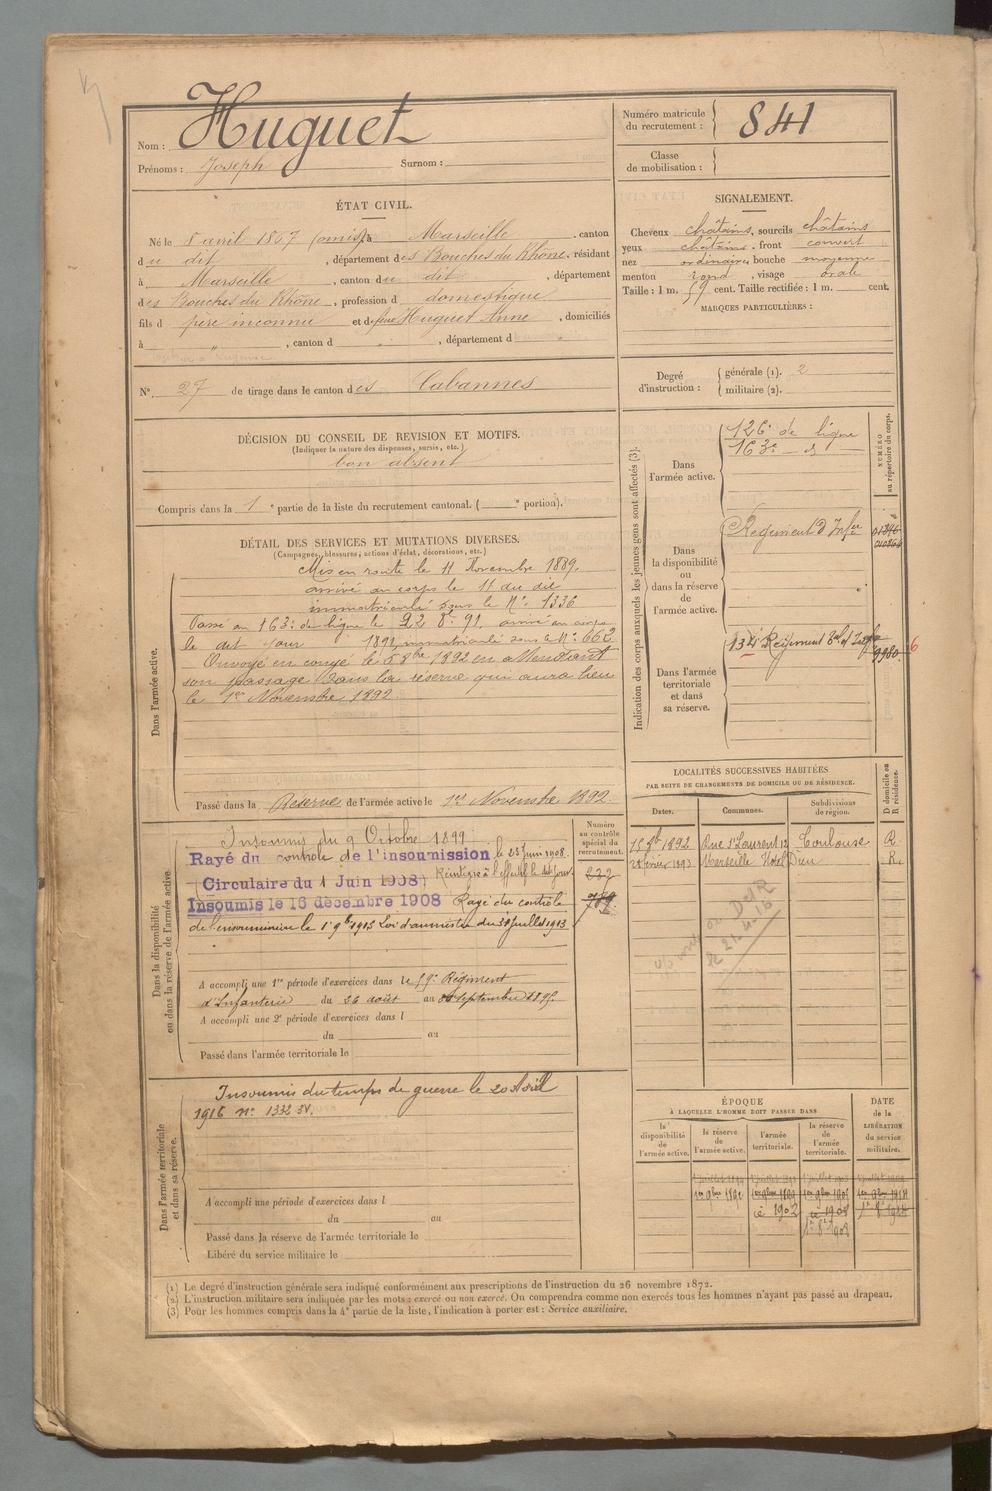 Nom : Huguet
Prénoms : Joseph Surnom :
Numéro matricule du recrutement : 841
Classe de mobilisation :
ÉTAT CIVIL.
Né le 8 avril 1867 (omis) à Marseille, canton
du dit, département des Bouches du Rhône, résidant
à Marseille, canton du dit, département
des Bouches du Rhône, profession d domestique
fils d père inconnu et d feue Huguet Anne, domiciliés
à " , canton d , département d
N° 27 de tirage dans le canton des Cabannes
SIGNALEMENT.
Cheveux châtains, sourcils châtains
yeux châtains, front couvert
nez ordinaire, bouche moyenne
menton rond, visage ovale
Taille : 1 m. 59 cent. Taille rectifiée : 1 m. cent.
MARQUES PARTICULIÈRES :
Degré d'instruction : générale (1). 2
militaire (2).
DÉCISION DU CONSEIL DE REVISION ET MOTIFS.
(Indiquer la nature des dispenses, sursis, etc.)
bon absent
Compris dans la 1e partie de la liste du recrutement cantonal. ( e portion).
DÉTAIL DES SERVICES ET MUTATIONS DIVERSES.
(Campagnes, blessures, actions d'éclat, décorations, etc.)
Dans l'armée active.
Mis en route le 11 Novembre 1889.
arrivé au corps le 11 du dit
immatriculé sous le N° 1336
Passé au 163e de ligne le 22 8bre 91, arrivé au corps
le dit jour 1891, immatriculé sous le N° 662
Envoyé en congé le 1892 en attendant
son passage dans la réserve qui aura lieu
le 1er Novembre 1892.
Passé dans la Réserve de l'armée active le 1er Novembre 1892
Indication des corps auxquels les jeunes gens sont affectés (3).
NUMÉRO au répertoire du corps.
Dans l'armée active.
126e de ligne
163e d
Dans la disponibilité ou dans la réserve de l'armée active.
Régiment d'Infie
Dans l'armée territoriale et dans sa réserve.
134 Régiment
9980 6
LOCALITÉS SUCCESSIVES HABITÉES
PAR SUITE DE CHANGEMENTS DE DOMICILE OU DE RÉSIDENCE.
Dates. Communes. Subdivisions de région. D domicile ou R résidence.
1892 Rue St Laurent 12 Toulouse R
28 février 1893 Marseille Hôtel Dieu R.
Dans la disponibilité ou dans la réserve de l'armée active.
Numéro au contrôle spécial du recrutement.
Insoumis du 9 Octobre 1899
Rayé du contrôle de l'insoumission le 23 Juin 1908.
Circulaire du 1 Juin 1908) Réintégré à l'effectif le dit jour
Insoumis le 16 décembre 1908 Rayé du contrôle
de l'insoumission le 1er 9bre 1913 Loi d'amnistie du 31 juillet 1913
A accompli une 1re période d'exercices dans le 59e Régiment
d'Infanterie du 26 août au septembre 1895.
A accompli une 2e période d'exercices dans l
du au
Passé dans l'armée territoriale le
Dans l'armée territoriale et dans sa réserve.
Insoumis du temps de guerre le 20 Avril
1916 n° 1332 SV.
A accompli une période d'exercices dans l
du au
Passé dans la réserve de l'armée territoriale le
Libéré du service militaire le
ÉPOQUE
À LAQUELLE L'HOMME DOIT PASSER DANS
DATE de la LIBÉRATION du service militaire.
la disponibilité de l'armée active.
la réserve de l'armée active.
l'armée territoriale.
la réserve de l'armée territoriale.
(1) Le degré d'instruction générale sera indiqué conformément aux prescriptions de l'instruction du 26 novembre 1872.
(2) L'instruction militaire sera indiquée par les mots : exercé ou non exercé. On comprendra comme non exercés tous les hommes n'ayant pas passé au drapeau.
(3) Pour les hommes compris dans la 4e partie de la liste, l'indication à porter est : Service auxiliaire.